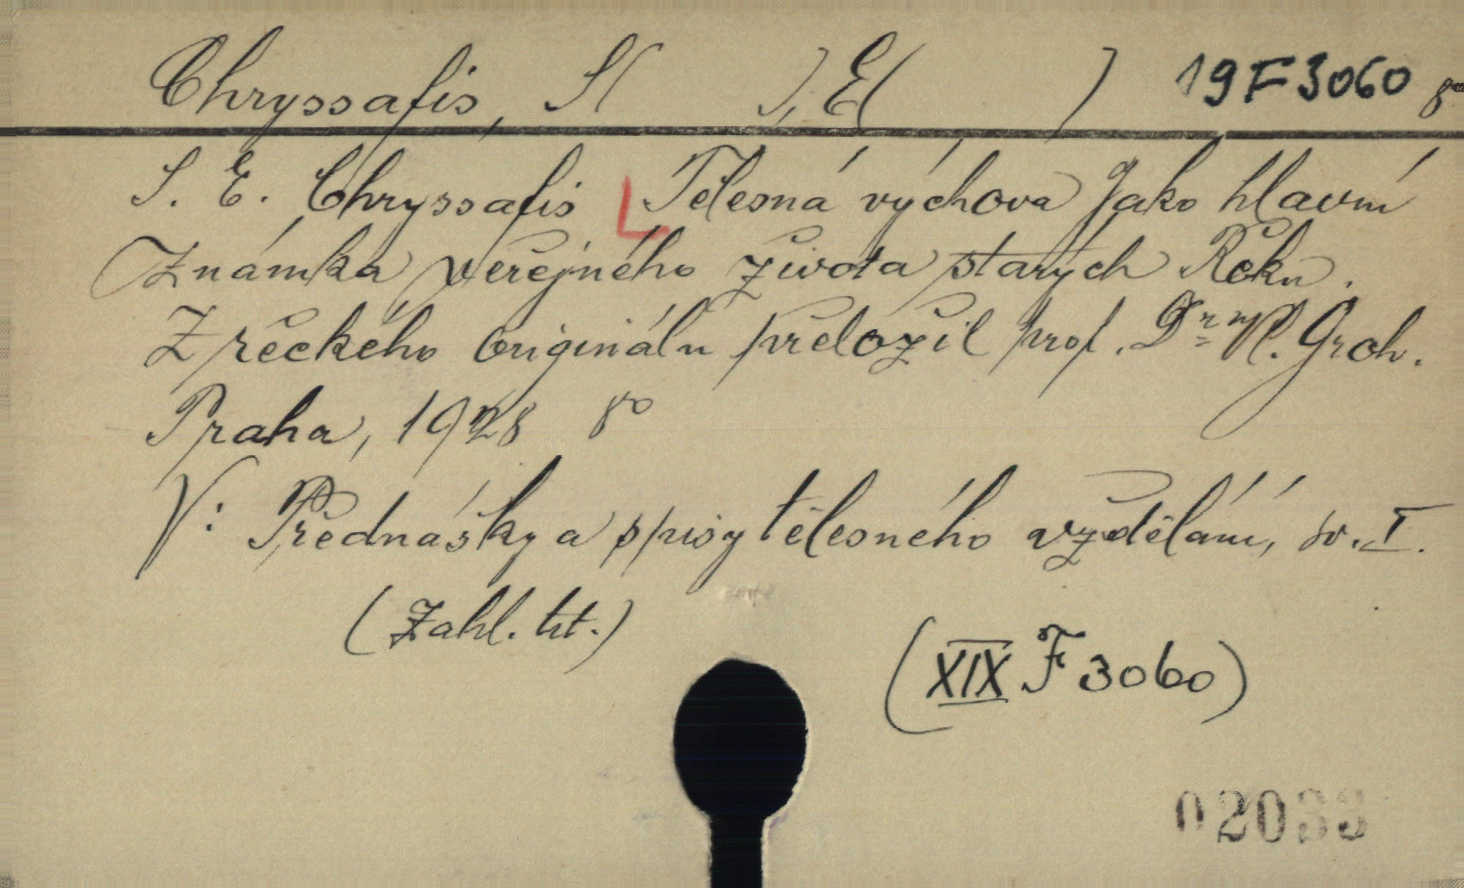 Chryssafis, S( ), E( ) 19F3060 8°
S. E. Chryssafis Tělesná výchova jako hlavní
známka veřejného života starých Řeků.
Z řeckého originálu přeložil prof. Dr Vl. Groh.
Praha, 1928 8°
V: Přednášky a spisy tělesného vzdělání, sv. I.
(Zahl. tit.)
(XIX F 3060)
02033